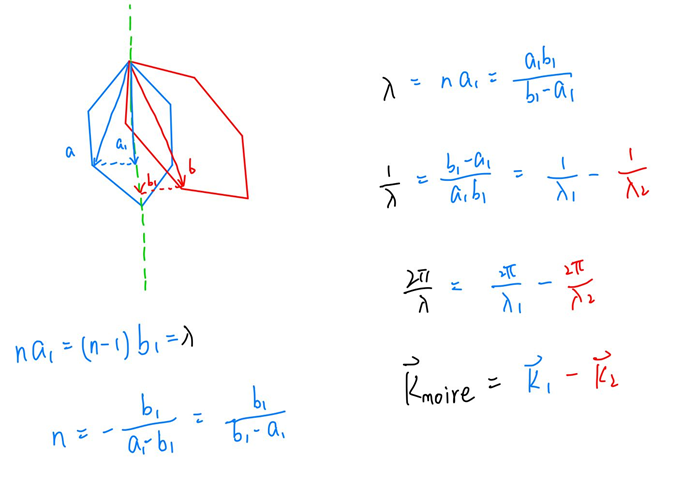 a
a₁
b₁
b
na₁ = (n-1) b₁ = λ
n = - b₁/(a₁-b₁) = b₁/(b₁-a₁)
λ = na₁ = a₁b₁/(b₁-a₁)
1/λ = (b₁-a₁)/(a₁b₁) = 1/λ₁ - 1/λ₂
2π/λ = 2π/λ₁ - 2π/λ₂
K⃗moire = K⃗₁ - K⃗₂